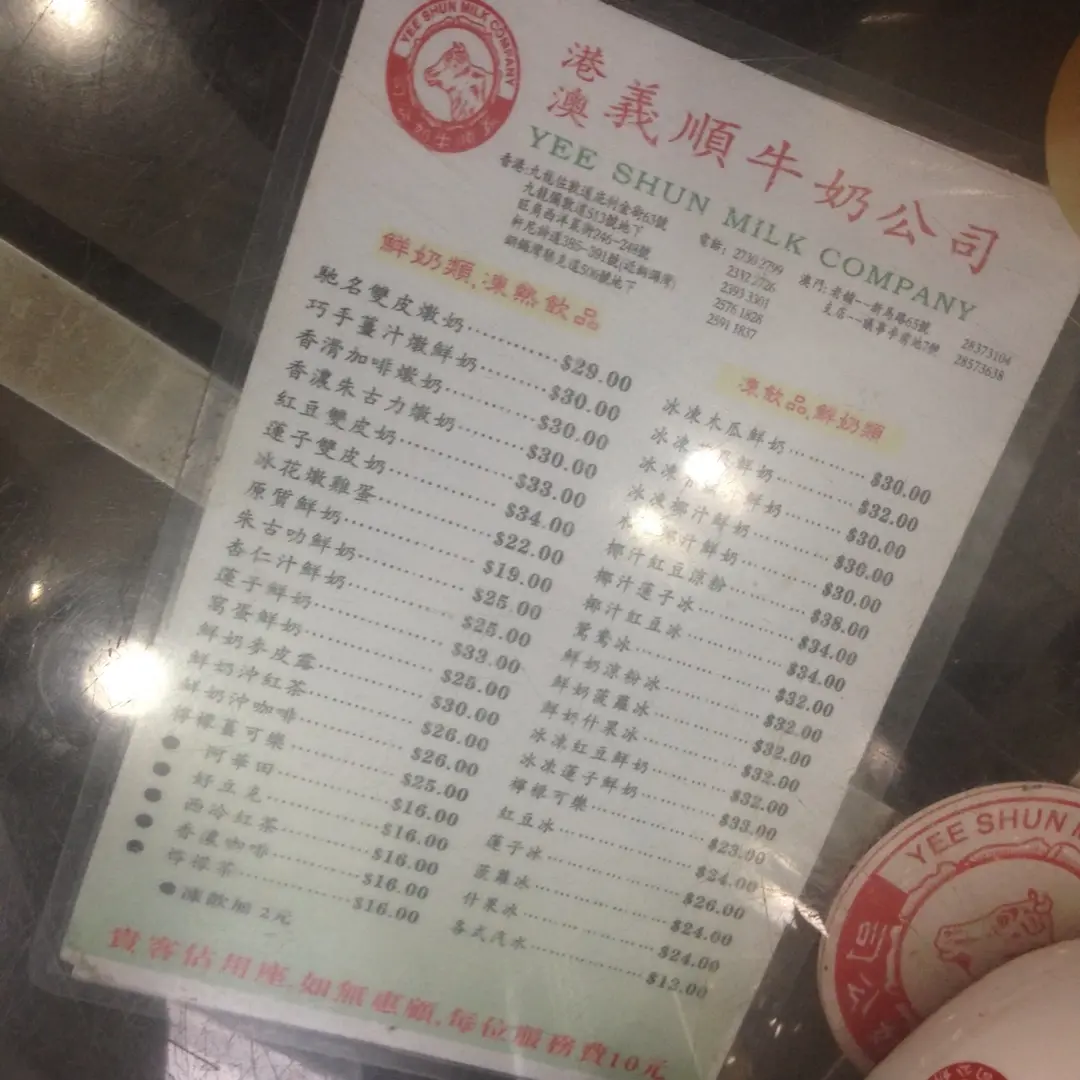 YEE SHUN MILK COMPANY
港澳義順牛奶公司
YEE SHUN MILK COMPANY
香港:九龍佐敦道庇利金街63號 電話: 2730 2799
九龍彌敦道513號地下 2332 2726
旺角西洋菜街246-248號 2393 3301
軒尼詩道385-391號(近銅鑼灣) 2576 1828
銅鑼灣駱克道506號地下 2591 1837
澳門:老鋪--新馬路65號 28373104
支店--議事亭前地7號 28573638
鮮奶類,凍熱飲品
馳名雙皮燉奶 $29.00
巧手薑汁燉鮮奶 $30.00
香滑加啡燉奶 $30.00
香濃朱古力燉奶 $30.00
紅豆雙皮奶 $33.00
蓮子雙皮奶 $34.00
冰花燉雞蛋 $22.00
原質鮮奶 $19.00
朱古叻鮮奶 $25.00
杏仁汁鮮奶 $25.00
蓮子鮮奶 $33.00
窩蛋鮮奶 $25.00
鮮奶麥皮露 $30.00
鮮奶沖紅茶 $26.00
鮮奶沖咖啡 $26.00
檸檬薑可樂 $25.00
● 阿華田 $16.00
● 好立克 $16.00
● 西冷紅茶 $16.00
● 香濃咖啡 $16.00
● 檸檬茶 $16.00
● 凍飲加2元
凍飲品,鮮奶類
冰凍木瓜鮮奶 $30.00
冰凍 鮮奶 $32.00
冰凍 鮮奶 $30.00
冰凍椰汁鮮奶 $30.00
汁鮮奶 $30.00
椰汁紅豆涼粉 $38.00
椰汁蓮子冰 $34.00
椰汁紅豆冰 $34.00
鴛鴦冰 $32.00
鮮奶涼粉冰 $32.00
鮮奶菠蘿冰 $32.00
鮮奶什果冰 $32.00
冰凍紅豆鮮奶 $32.00
冰凍蓮子鮮奶 $33.00
檸檬可樂 $23.00
紅豆冰 $24.00
蓮子冰 $26.00
菠蘿冰 $24.00
什果冰 $24.00
各式汽水 $13.00
貴客佔用座,如無惠顧,每位服務費10元
YEE SHUN